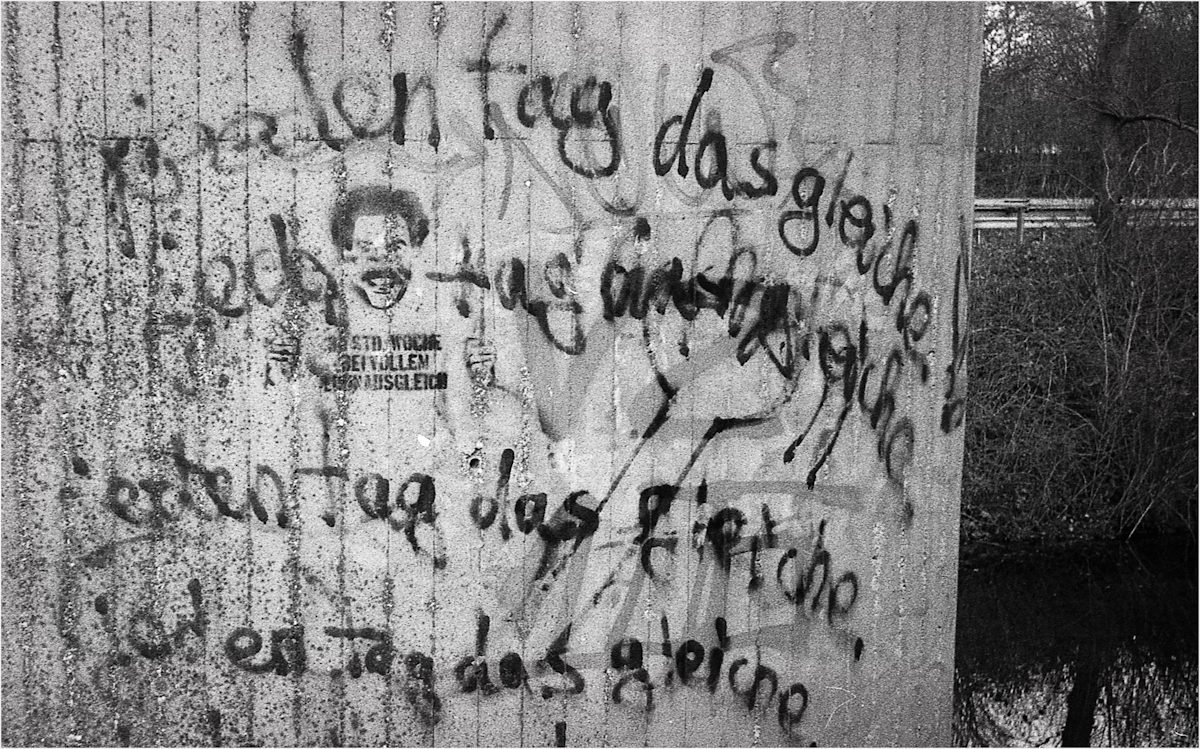 jeden tag das gleiche
jeden tag das gleiche
35 STD. WOCHE
BEI VOLLEM
LOHNAUSGLEICH
jeden tag das gleiche
jeden tag das gleiche